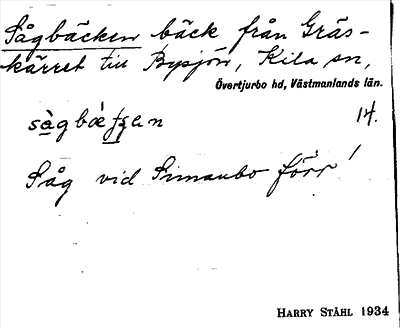 Sågbäcken bäck från Gräs-
kärret till Bysjön, Kila sn,
Övertjurbo hd, Västmanlands län.
14.
Såg vid Simanbo förr!
HARRY STÅHL 1934